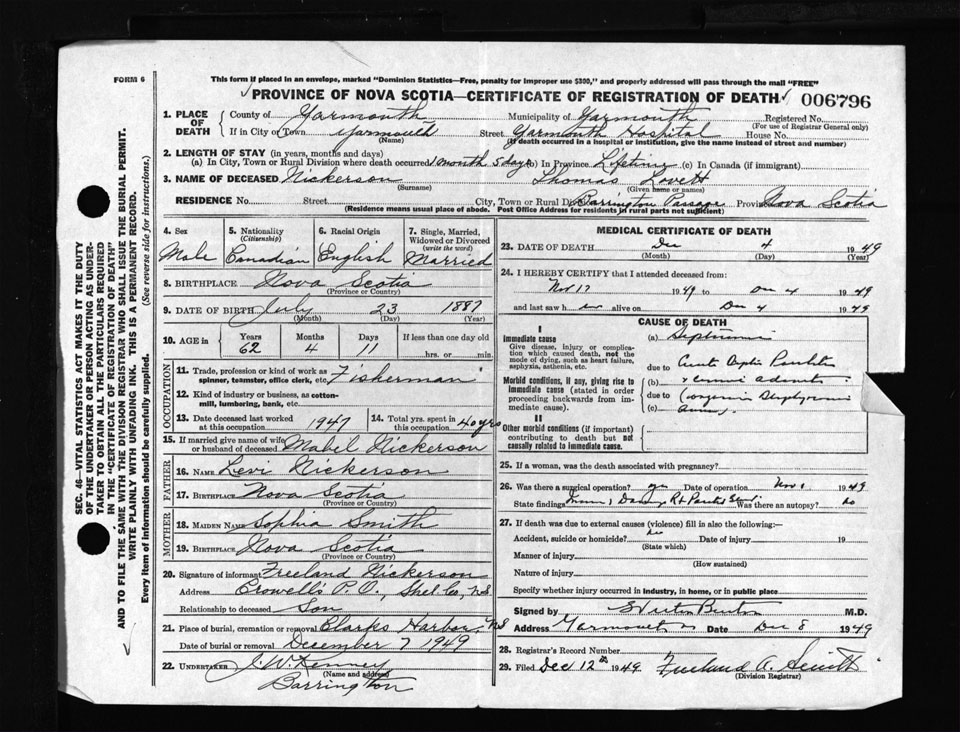 FORM 6
This form if placed in an envelope, marked "Dominion Statistics—Free, penalty for improper use $300," and properly addressed will pass through the mail "FREE"
PROVINCE OF NOVA SCOTIA—CERTIFICATE OF REGISTRATION OF DEATH 006796
1. PLACE OF DEATH
County of Yarmouth Municipality of Yarmouth Registered No.
(For use of Registrar General only)
If in City or Town Yarmouth Street Yarmouth Hospital House No.
(If death occurred in a hospital or institution, give the name instead of street and number)
2. LENGTH OF STAY (in years, months and days)
(a) In City, Town or Rural Division where death occurred 1 month 5 days (b) In Province Lifetime (c) In Canada (if immigrant)
3. NAME OF DECEASED Nickerson Thomas Lovett
(Surname) (Given name or names)
RESIDENCE No. Street City, Town or Rural Div. Barrington Passage Province Nova Scotia
(Residence means usual place of abode. Post Office Address for residents in rural parts not sufficient)
4. Sex
Male
5. Nationality
(Citizenship)
Canadian
6. Racial Origin
English
7. Single, Married, Widowed or Divorced
(write the word)
Married
8. BIRTHPLACE Nova Scotia
(Province or Country)
9. DATE OF BIRTH July 23 1887
(Month) (Day) (Year)
10. AGE in Years Months Days If less than one day old
62 4 11 hrs. or min.
OCCUPATION
11. Trade, profession or kind of work as
spinner, teamster, office clerk, etc. Fisherman
12. Kind of industry or business, as cotton-
mill, lumbering, bank, etc.
13. Date deceased last worked
at this occupation 1947
14. Total yrs. spent in
this occupation 40 yrs
15. If married give name of wife
or husband of deceased Mabel Nickerson
FATHER
16. NAME Levi Nickerson
17. BIRTHPLACE Nova Scotia
(Province or Country)
MOTHER
18. MAIDEN NAME Sophia Smith
19. BIRTHPLACE Nova Scotia
(Province or Country)
20. Signature of informant Freeland Nickerson
Address Crowell's P.O., Shel. Co., N.S.
Relationship to deceased Son
21. Place of burial, cremation or removal Clarks Harbor, NS
Date of burial or removal December 7 1949
22. UNDERTAKER J. W. Kenney
(Name and address)
Barrington
MEDICAL CERTIFICATE OF DEATH
23. DATE OF DEATH Dec 4 1949
(Month) (Day) (Year)
24. I HEREBY CERTIFY that I attended deceased from:
1949 to Dec 4 1949
and last saw h alive on Dec 4 1949
CAUSE OF DEATH
I
Immediate cause
Give disease, injury or complication which caused death, not the mode of dying, such as heart failure, asphyxia, asthenia, etc.
(a)
due to
Morbid conditions, if any, giving rise to immediate cause (stated in order proceeding backwards from immediate cause).
(b)
due to
(c)
II
Other morbid conditions (if important) contributing to death but not causally related to immediate cause.
25. If a woman, was the death associated with pregnancy?
26. Was there a surgical operation? yes Date of operation Nov 1949
State findings Was there an autopsy? no
27. If death was due to external causes (violence) fill in also the following:—
Accident, suicide or homicide? Date of injury 19
(State which)
Manner of injury
(How sustained)
Nature of injury
Specify whether injury occurred in industry, in home, or in public place
Signed by M.D.
Address Yarmouth NS Date Dec 8 1949
28. Registrar's Record Number
29. Filed Dec 12th 1949 Freeland A. Smith
(Division Registrar)
SEC. 46—VITAL STATISTICS ACT MAKES IT THE DUTY
OF THE UNDERTAKER OR PERSON ACTING AS UNDER-
TAKER TO OBTAIN ALL THE PARTICULARS REQUIRED
IN THE "CERTIFICATE OF REGISTRATION OF DEATH"
AND TO FILE THE SAME WITH THE DIVISION REGISTRAR WHO SHALL ISSUE THE BURIAL PERMIT.
WRITE PLAINLY WITH UNFADING INK. THIS IS A PERMANENT RECORD.
Every item of information should be carefully supplied. (See reverse side for instructions.)